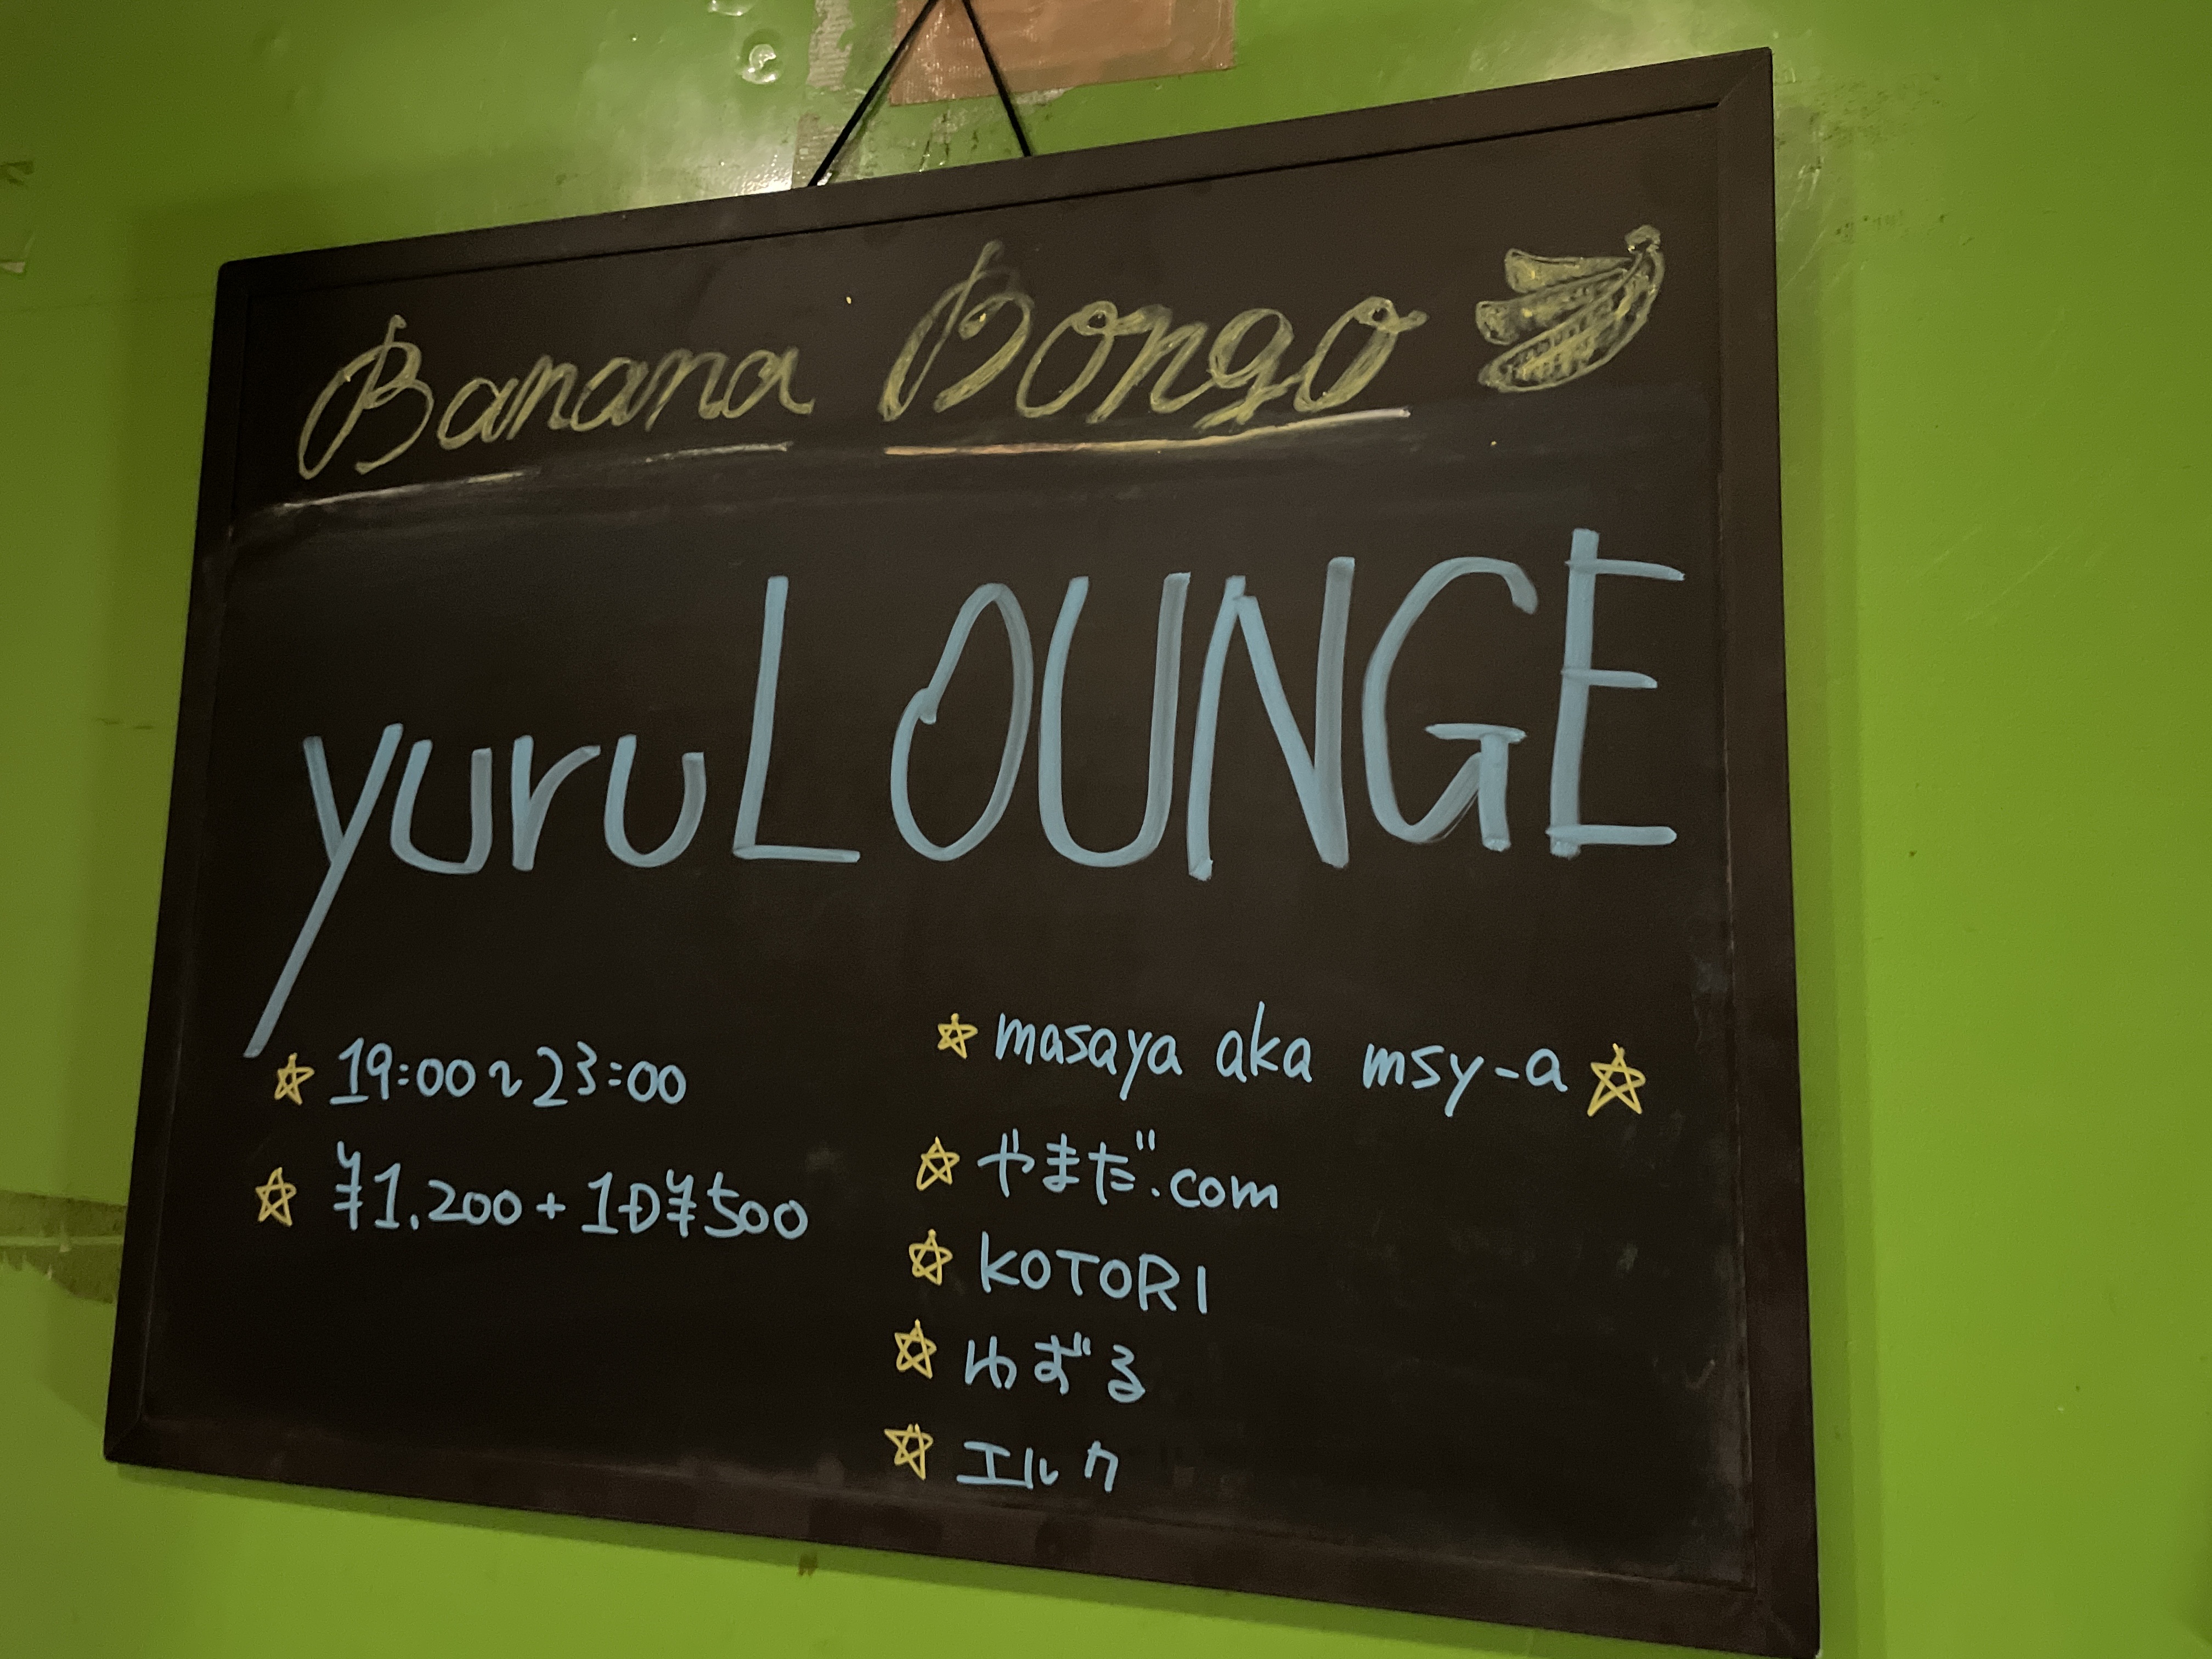 Banana Bongo
yuru LOUNGE
☆ 19:00~23:00
☆ ¥1.200 + 1D¥500
☆ masaya aka msy-a ☆
☆ やまだ.com
☆ KOTORI
☆ ゆずる
☆ エルク